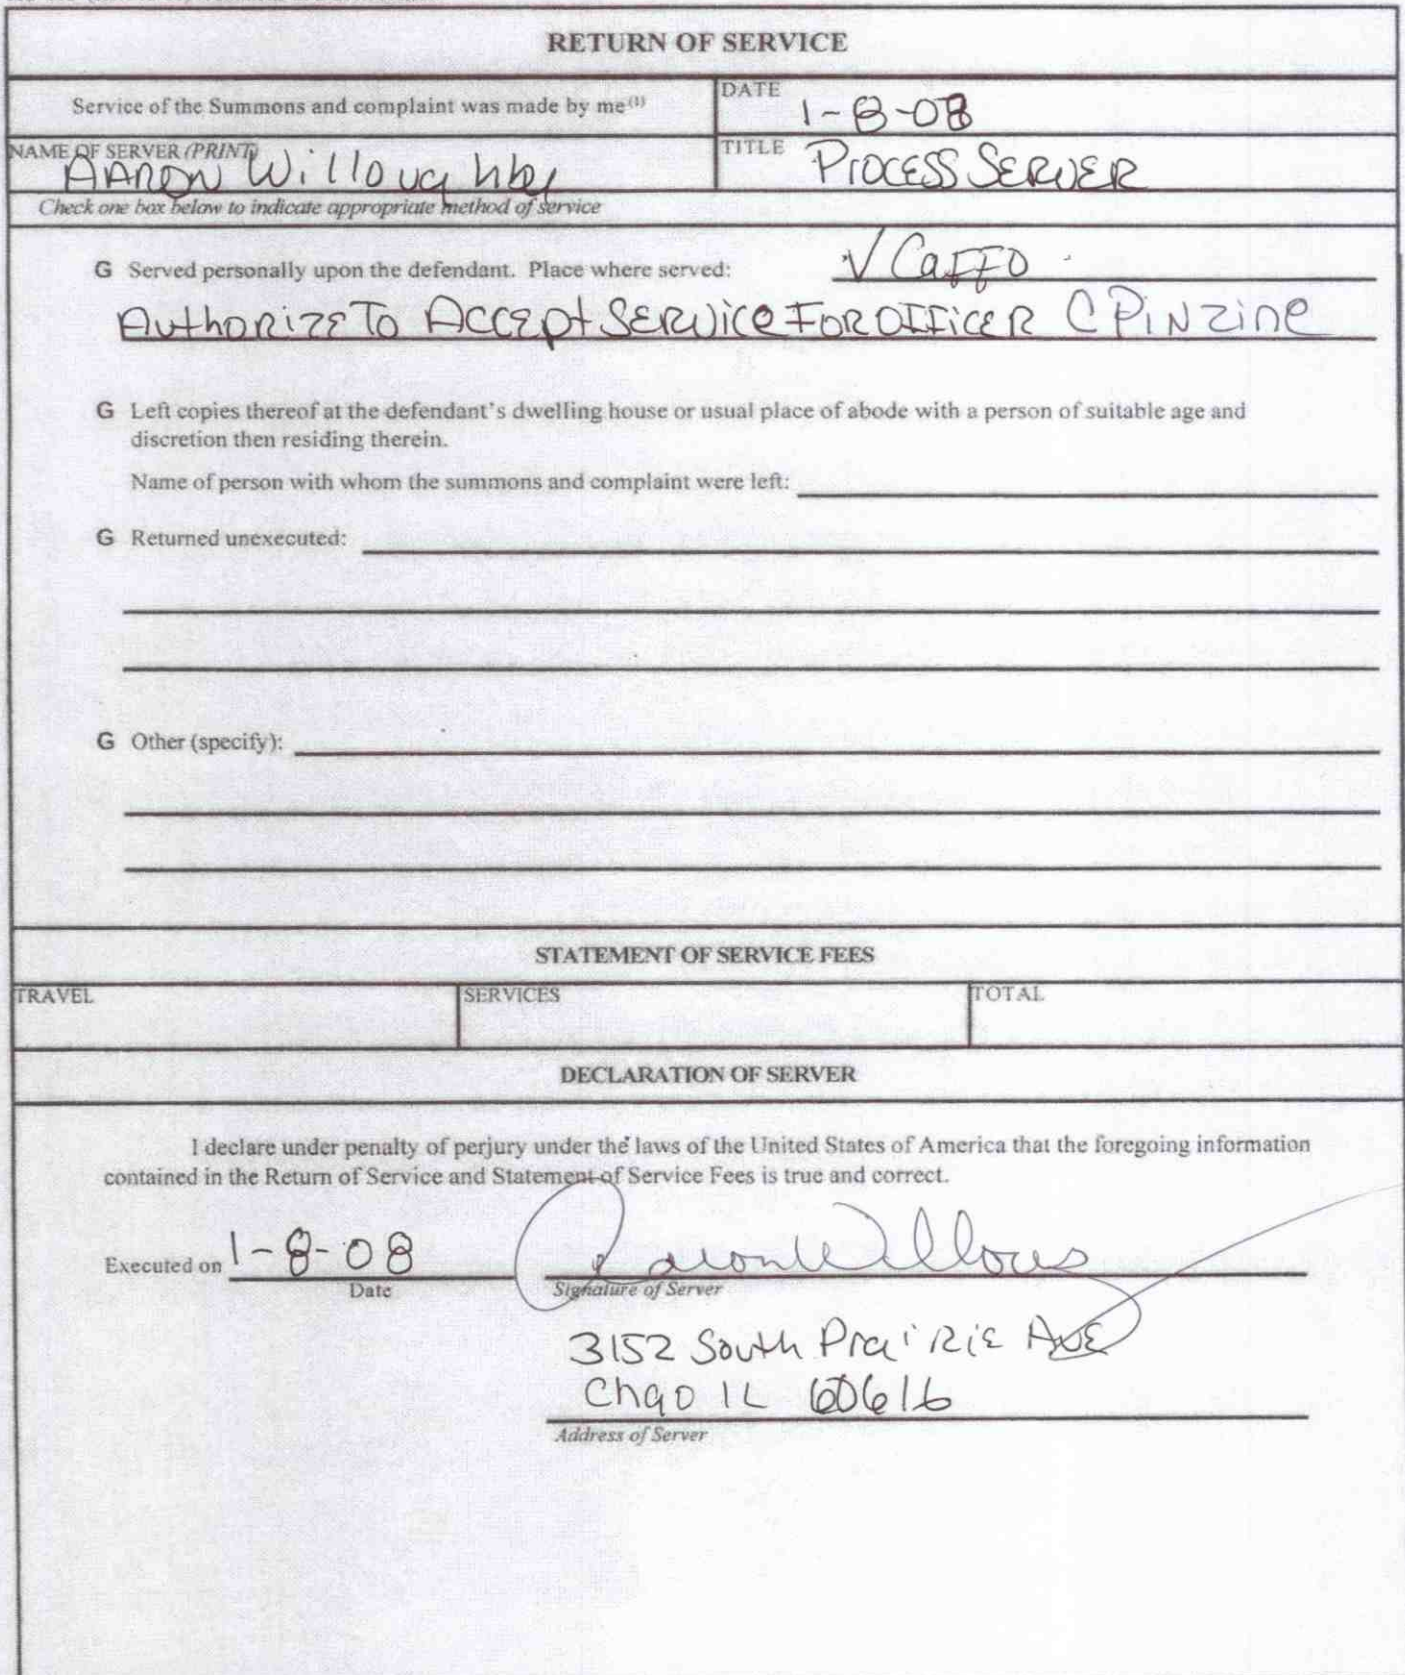 RETURN OF SERVICE
Service of the Summons and complaint was made by me(1)
DATE
1-8-08
NAME OF SERVER (PRINT)
AARON Willoughby
TITLE
PROCESS SERVER
Check one box below to indicate appropriate method of service
G Served personally upon the defendant. Place where served: V Caffo
Authorize To Accept Service For Officer C Pinzine
G Left copies thereof at the defendant's dwelling house or usual place of abode with a person of suitable age and
discretion then residing therein.
Name of person with whom the summons and complaint were left:
G Returned unexecuted:
G Other (specify):
STATEMENT OF SERVICE FEES
TRAVEL
SERVICES
TOTAL
DECLARATION OF SERVER
I declare under penalty of perjury under the laws of the United States of America that the foregoing information
contained in the Return of Service and Statement of Service Fees is true and correct.
Executed on 1-8-08
Date
Signature of Server
3152 South Prairie Ave
Chgo IL 60616
Address of Server